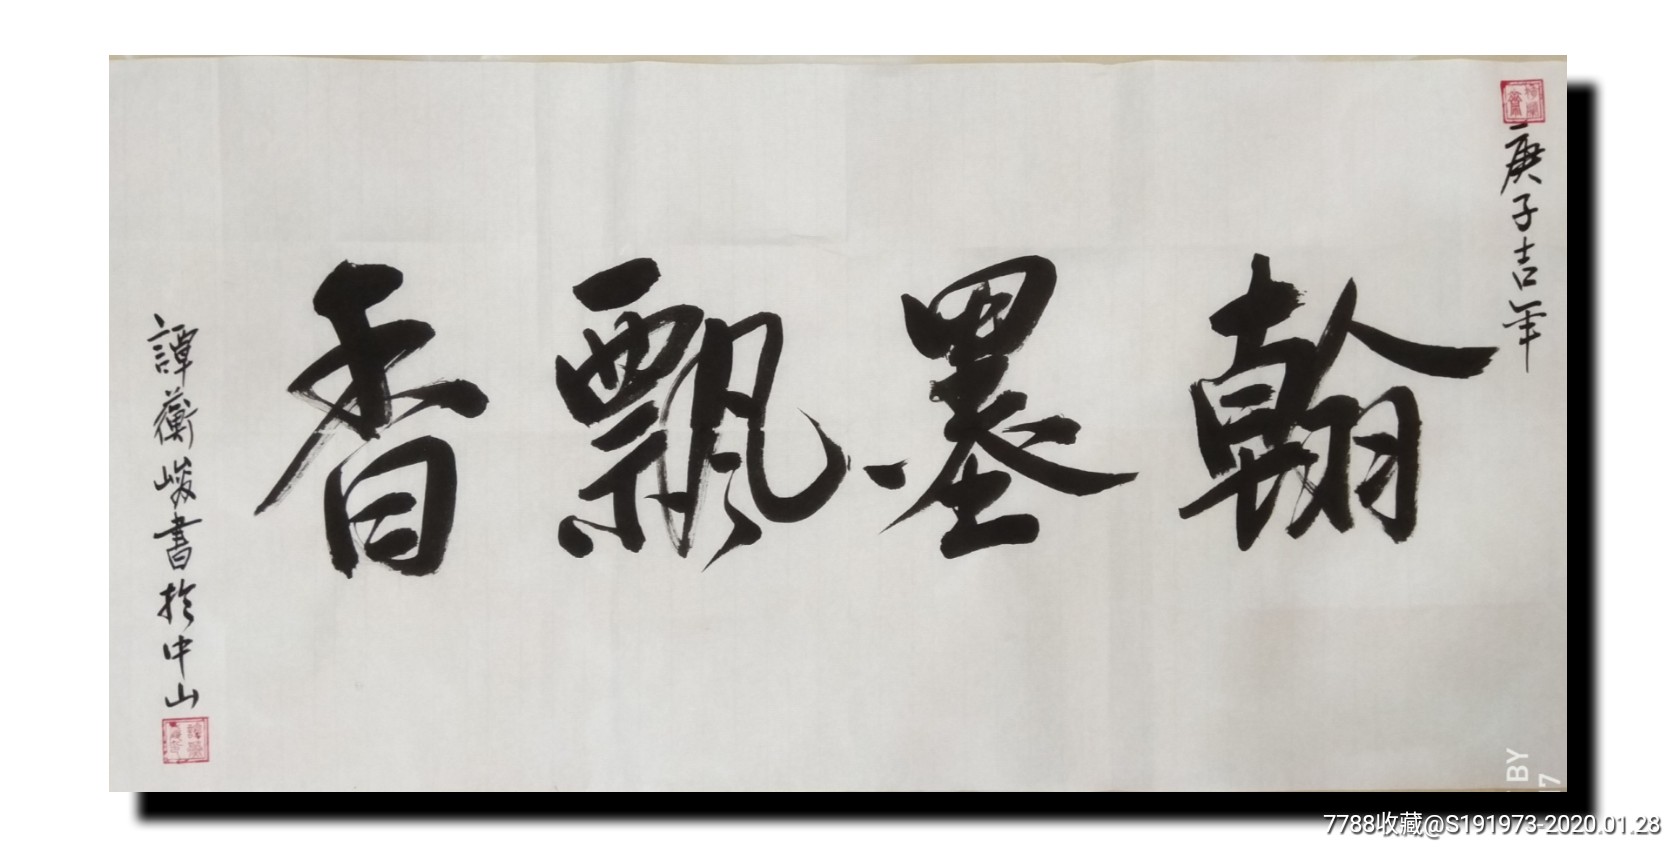 庚子吉年
翰墨飄香
譚蘅峻書於中山
BY
7788收藏@S191973-2020.01.28